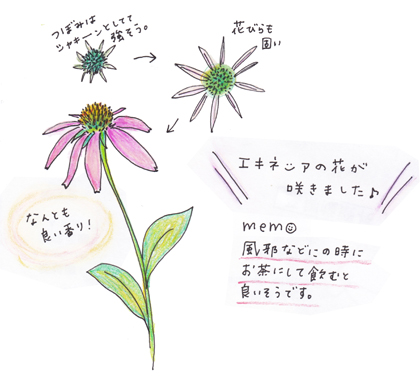 つぼみは
シャキーンとしてて
強そう。
花びらも
固い
エキネシアの花が
咲きました♪
なんとも
良い香り!
memo
風邪などの時に
お茶にして飲むと
良いそうです。